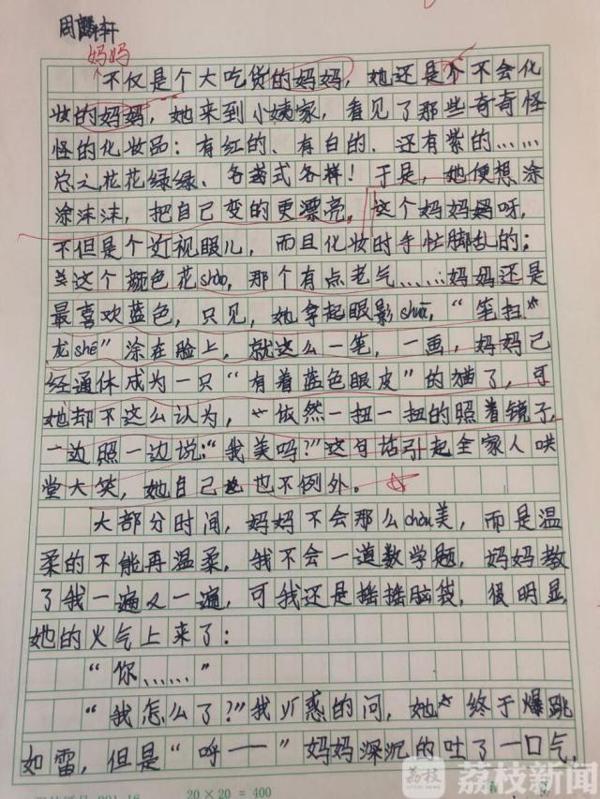 周麟轩
妈妈
不仅是个大吃货的妈妈，她还是个不会化
妆的妈妈，她来到小姨家，看见了那些奇奇怪
怪的化妆品：有红的、有白的、还有紫的……
总之花花绿绿、各式各样！于是，她便想涂
涂沫沫，把自己变的更漂亮，这个妈妈呀，
不但是个近视眼儿，而且化妆时手忙脚乱的；
这个颜色花shào，那个有点老气……妈妈还是
最喜欢蓝色，只见，她拿起眼影shuā，“笔扫
龙shé”涂在脸上，就这么一笔，一画，妈妈已
经通体成为一只“有着蓝色眼皮”的猫了，可
她却不这么认为，依然一扭一扭的照着镜子，
一边照一边说：“我美吗？”这句话引起全家人哄
堂大笑，她自己也不例外。
大部分时间，妈妈不会那么chòu美，而是温
柔的不能再温柔，我不会一道数学题，妈妈教
了我一遍又一遍，可我还是摇摇脑袋，很明显，
她的火气上来了：
“你……”
“我怎么了？”我惑的问，她终于爆跳
如雷，但是“呼——”妈妈深沉的吐了一口气，
20×20=400
荔枝 荔枝新闻